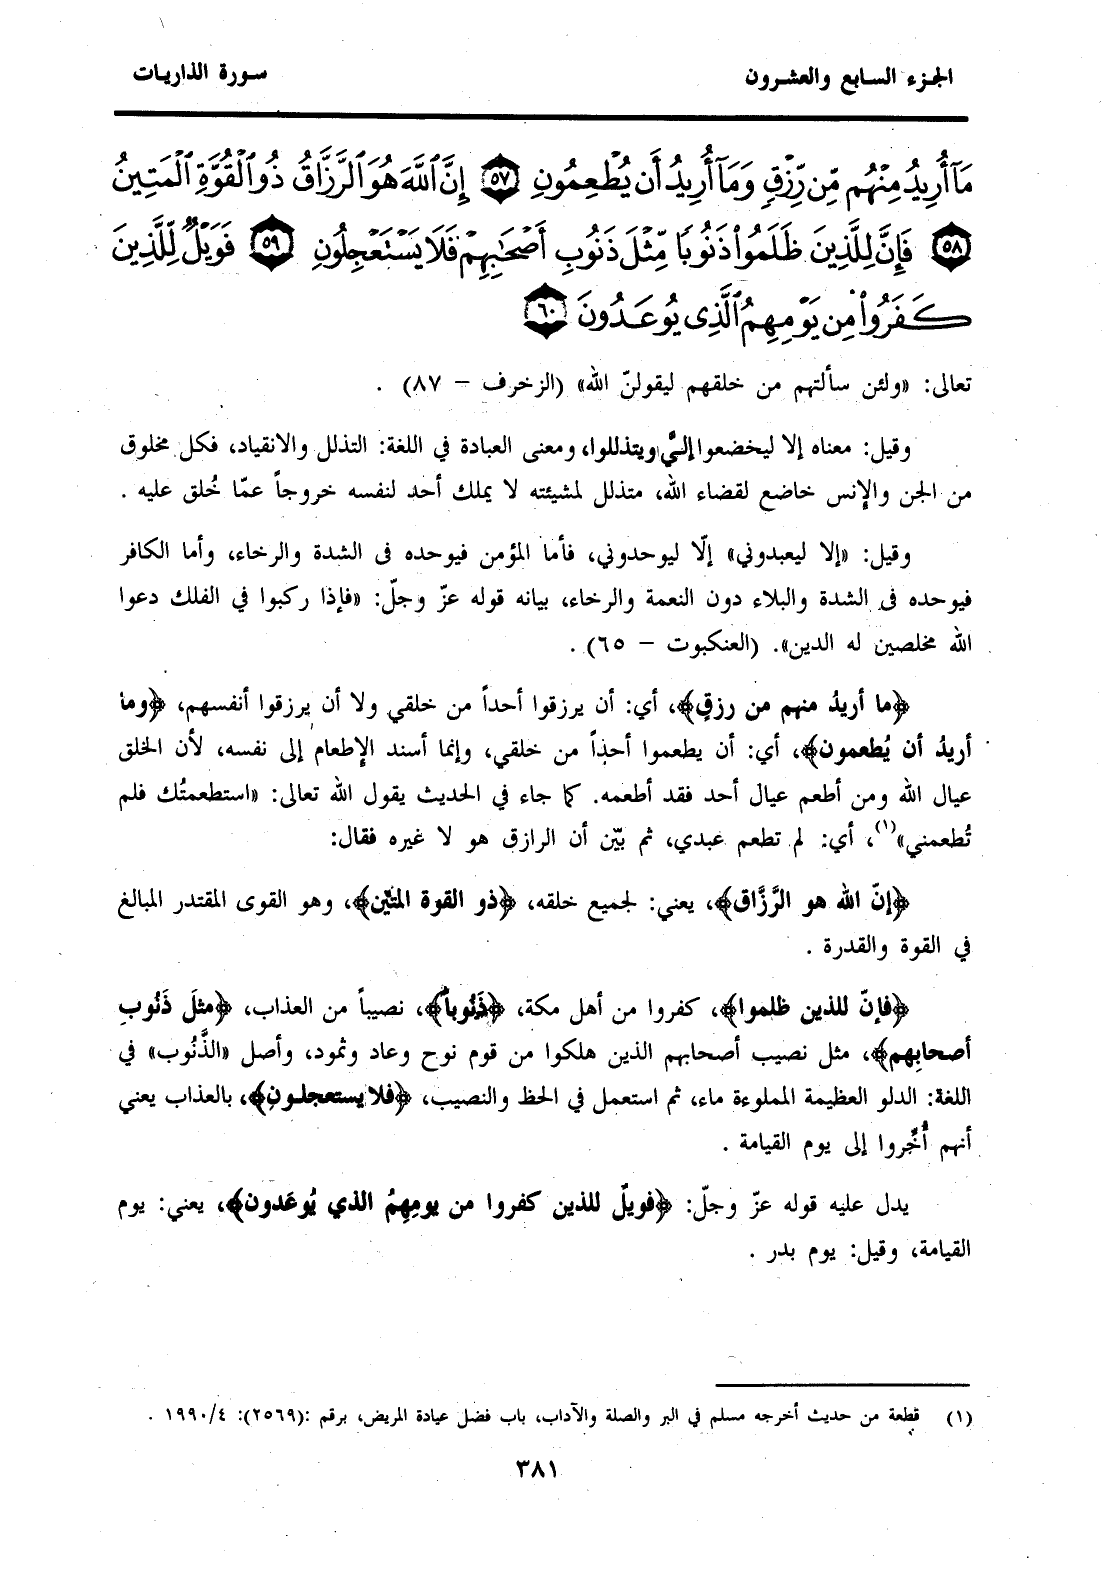 الجزء السابع والعشرون
سورة الذاريات
مَآ أُرِيدُ مِنْهُم مِّن رِّزْقٍ وَمَآ أُرِيدُ أَن يُطْعِمُونِ ٥٧ إِنَّ ٱللَّهَ هُوَ ٱلرَّزَّاقُ ذُو ٱلْقُوَّةِ ٱلْمَتِينُ
٥٨ فَإِنَّ لِلَّذِينَ ظَلَمُوا۟ ذَنُوبًا مِّثْلَ ذَنُوبِ أَصْحَـٰبِهِمْ فَلَا يَسْتَعْجِلُونِ ٥٩ فَوَيْلٌ لِّلَّذِينَ
كَفَرُوا۟ مِن يَوْمِهِمُ ٱلَّذِى يُوعَدُونَ ٦٠
تعالى: «ولئن سألتهم من خلقهم ليقولنّ الله» (الزخرف – ٨٧) .
وقيل: معناه إلا ليخضعوا إليَّ ويتذللوا، ومعنى العبادة في اللغة: التذلل والانقياد، فكل مخلوق
من الجن والإنس خاضع لقضاء الله، متذلل لمشيئته لا يملك أحد لنفسه خروجاً عمّا خُلق عليه .
وقيل: «إلا ليعبدوني» إلّا ليوحدوني، فأما المؤمن فيوحده فى الشدة والرخاء، وأما الكافر
فيوحده فى الشدة والبلاء دون النعمة والرخاء، بيانه قوله عزّ وجلّ: «فإذا ركبوا في الفلك دعوا
الله مخلصين له الدين». (العنكبوت – ٦٥) .
﴿ما أريدُ منهم من رزقٍ﴾، أي: أن يرزقوا أحداً من خلقي ولا أن يرزقوا أنفسهم، ﴿وما
أريدُ أن يُطعمون﴾، أي: أن يطعموا أحداً من خلقي، وإنما أسند الإطعام إلى نفسه، لأن الخلق
عيال الله ومن أطعم عيال أحد فقد أطعمه. كما جاء في الحديث يقول الله تعالى: «استطعمتُك فلم
تُطعمني»(١)، أي: لم تطعم عبدي، ثم بيّن أن الرازق هو لا غيره فقال:
﴿إنّ الله هو الرَّزَّاق﴾، يعني: لجميع خلقه، ﴿ذو القوة المتين﴾، وهو القوى المقتدر المبالغ
في القوة والقدرة .
﴿فإنّ للذين ظلموا﴾، كفروا من أهل مكة، ﴿ذَنُوباً﴾، نصيباً من العذاب، ﴿مثلَ ذَنُوبِ
أصحابِهم﴾، مثل نصيب أصحابهم الذين هلكوا من قوم نوح وعاد وثمود، وأصل «الذَّنُوب» في
اللغة: الدلو العظيمة المملوءة ماء، ثم استعمل في الحظ والنصيب، ﴿فلا يستعجلونِ﴾، بالعذاب يعني
أنهم أُخِّروا إلى يوم القيامة .
يدل عليه قوله عزّ وجلّ: ﴿فويلٌ للذين كفروا من يومِهِمُ الذي يُوعَدون﴾، يعني: يوم
القيامة، وقيل: يوم بدر .
(١) قطعة من حديث أخرجه مسلم في البر والصلة والآداب، باب فضل عيادة المريض، برقم :(٢٥٦٩): ٤/١٩٩٠ .
٣٨١